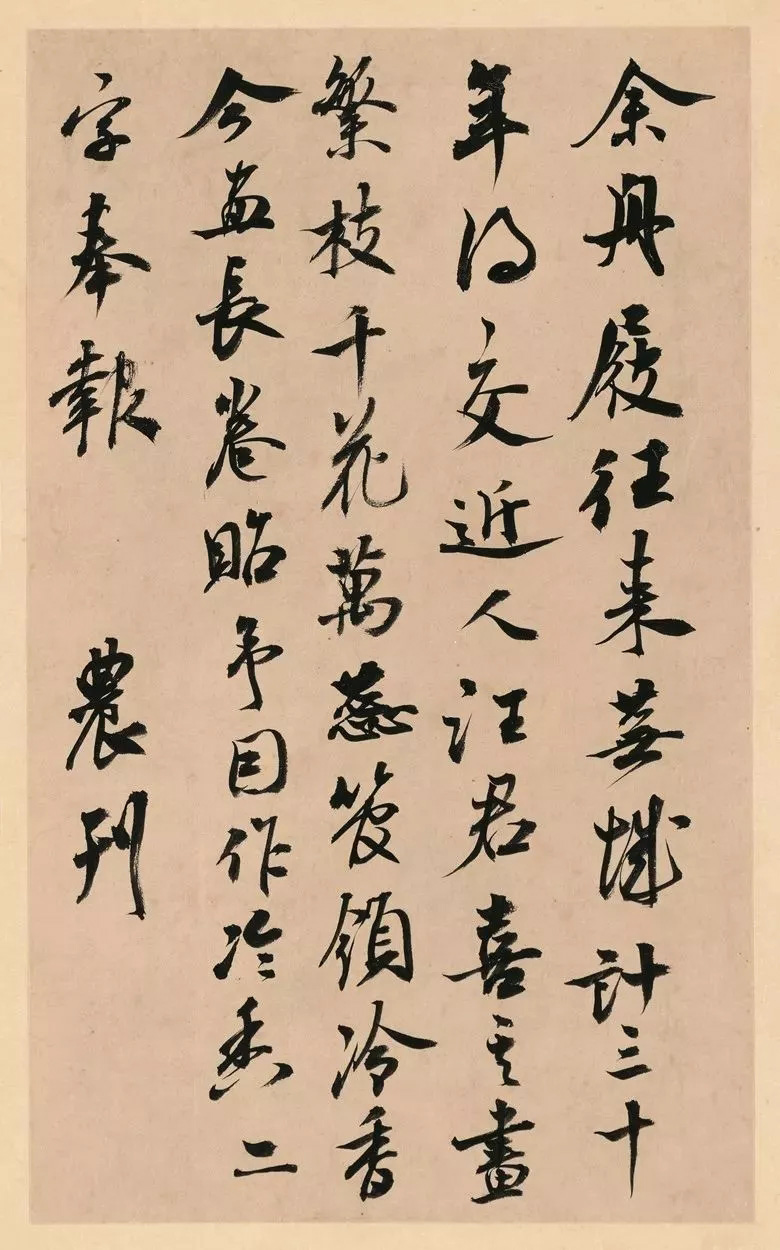 余舟屐往来蕪城計三十
年得交近人汪君喜其畫
繁枝千花萬蕊管領冷香
今画長卷貽予因作冷香二
字奉報 農刊